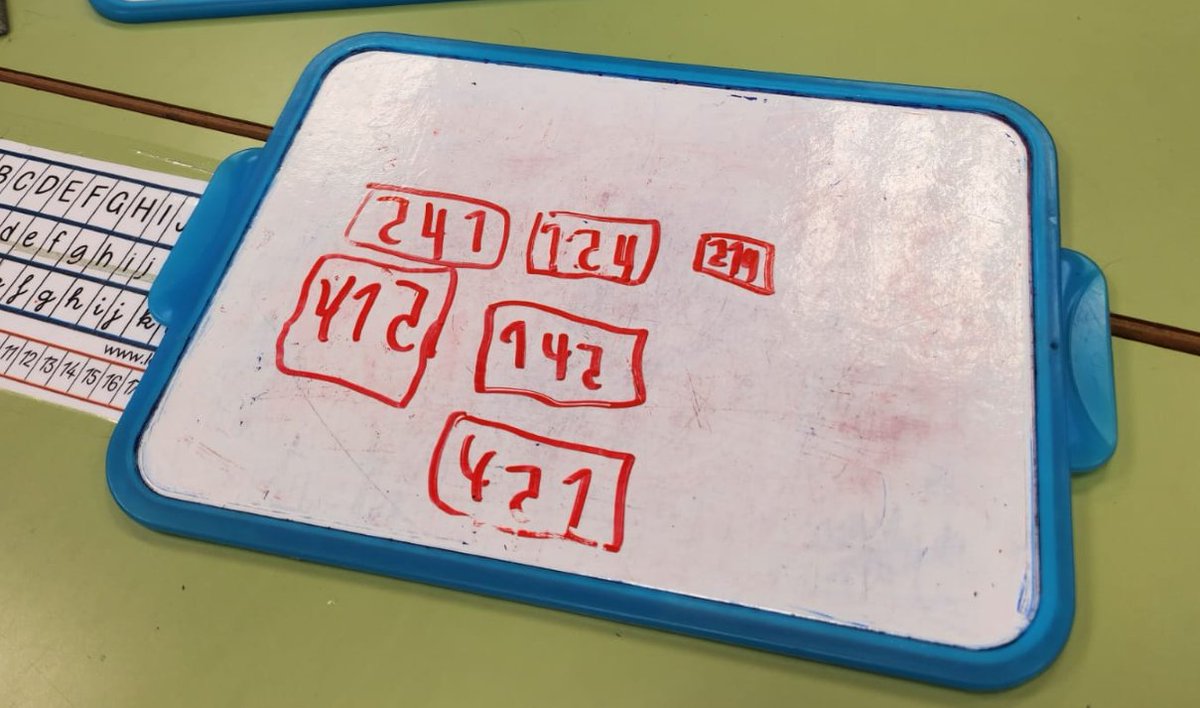 B C D E F G H I J
d e f g h i j
f g h i j k
www.
11 12 13 14 15 16
241 124 214
412 142
421